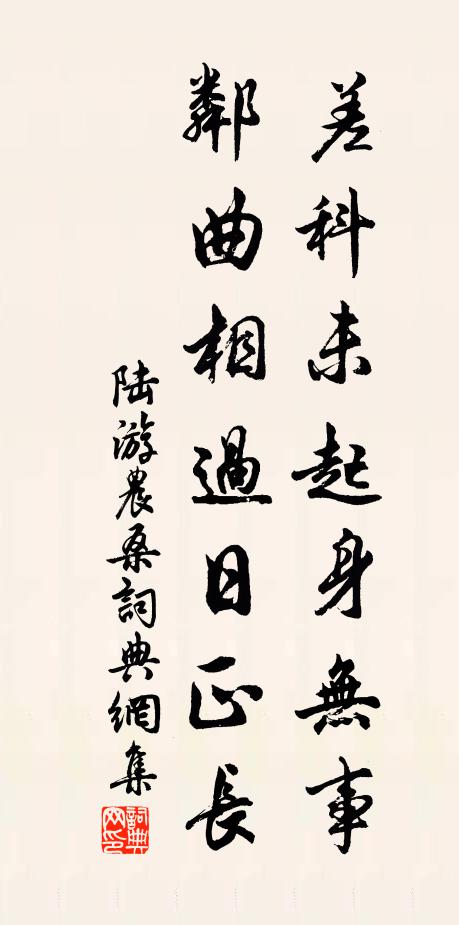 差科未起身無事
鄰曲相過日正長
陸游農桑詞典網集
詞典網印